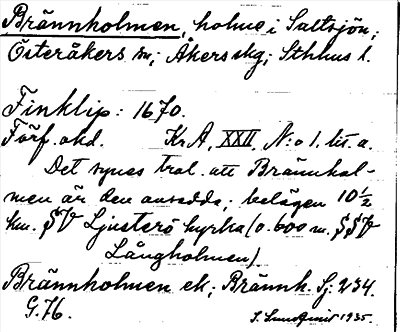 Brännholmen, holme i Saltsjön;
Österåkers sn; Åkers skg; Sthlms l.
Finklip: 1670.
Förf. okd. Kr A, XXII, N:o 1. lit. a.
Det synes trol. att Brännhol-
men är den avsedda; belägen 10 1/2
km. SV Ljusterö kyrka (o. 600 m. SSV
Långholmen).
Brännholmen ek; Brännh. Sj: 234.
G. 76.
S. Sundqvist 1935.